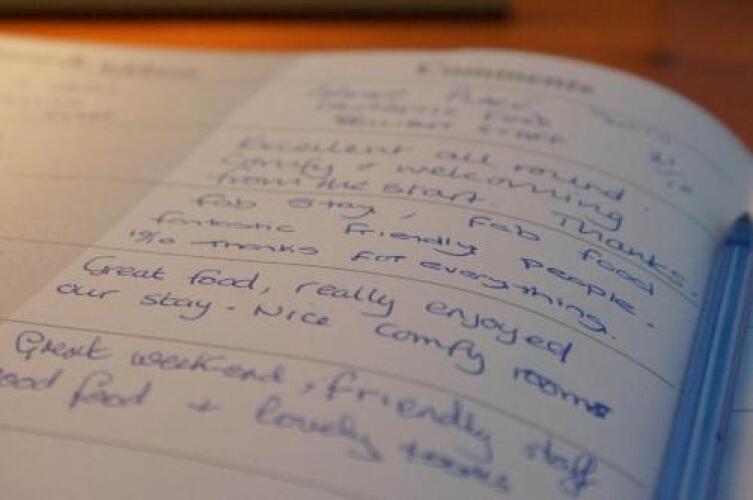 Comments
Fantastic Food
Excellent all round.
Comfy & welcoming
from the start. Thanks.
Fab stay, Fab food
fantastic friendly people.
10/10 Thanks for everything.
Great food, really enjoyed
our stay. Nice comfy rooms
Great weekend, friendly staff
food + lovely rooms